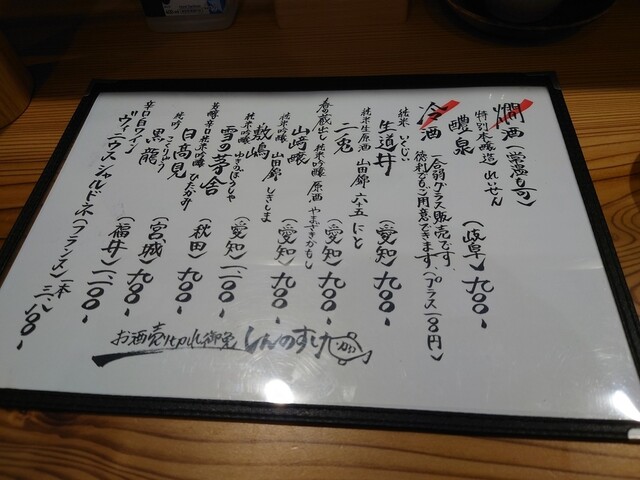 燗酒(常温も可)
特別本醸造 れいせん
醴泉 (岐阜) 九〇〇-
冷酒 (一合弱グラス販売です、
徳利もご用意できます、プラス一八〇円)
純米 いくじい
生道井 (愛知) 九〇〇-
純米生原酒 山田錦 六十五 にと
二兎 (愛知) 九〇〇-
春の蔵出し 純米吟醸 原酒 やまざきかもし
山﨑醸 (愛知) 九〇〇-
純米吟醸 山田錦 しきしま
敷嶋 (愛知) 九〇〇-
芳醇辛口純米吟醸 ゆきのぼうしゃ
雪の茅舎 (秋田) 一、一〇〇-
純米吟醸 ひたかみ
日高見 (宮城) 九〇〇-
純吟 こくりゅう
黒龍 (福井) 一、一〇〇-
辛口白ワイン
ヴィニウス シャルドネ (フランス) 一本 三、八〇〇-
お酒売り切れ御免
しんのすけ